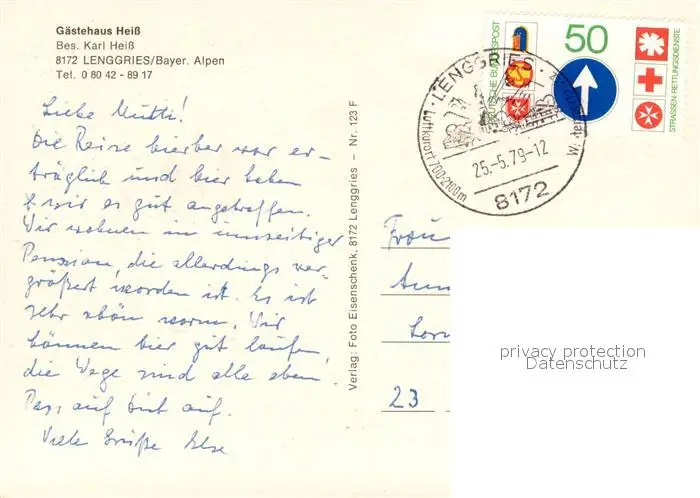 Gästehaus Heiß
Bes. Karl Heiß
8172 LENGGRIES/Bayer. Alpen
Tel. 0 80 42 - 89 17
Liebe Mutti!
Die Reise hierher war er-
träglich und hier haben
wir es gut angetroffen.
Wir wohnen in
Pension, die allerdings ver-
größert worden ist. Es ist
sehr schön warm. Wir
können hier gut laufen,
die Wege sind alle eben.
Pass auf Dich auf.
Viele Grüße Else
Verlag: Foto Eisenschenk, 8172 Lenggries – Nr. 123 F
DEUTSCHE BUNDESPOST
50
STRASSEN-RETTUNGSDIENSTE
LENGGRIES
Luftkurort 700-2100m
25.-5.79-12
8172
Frau
23
privacy protection
Datenschutz